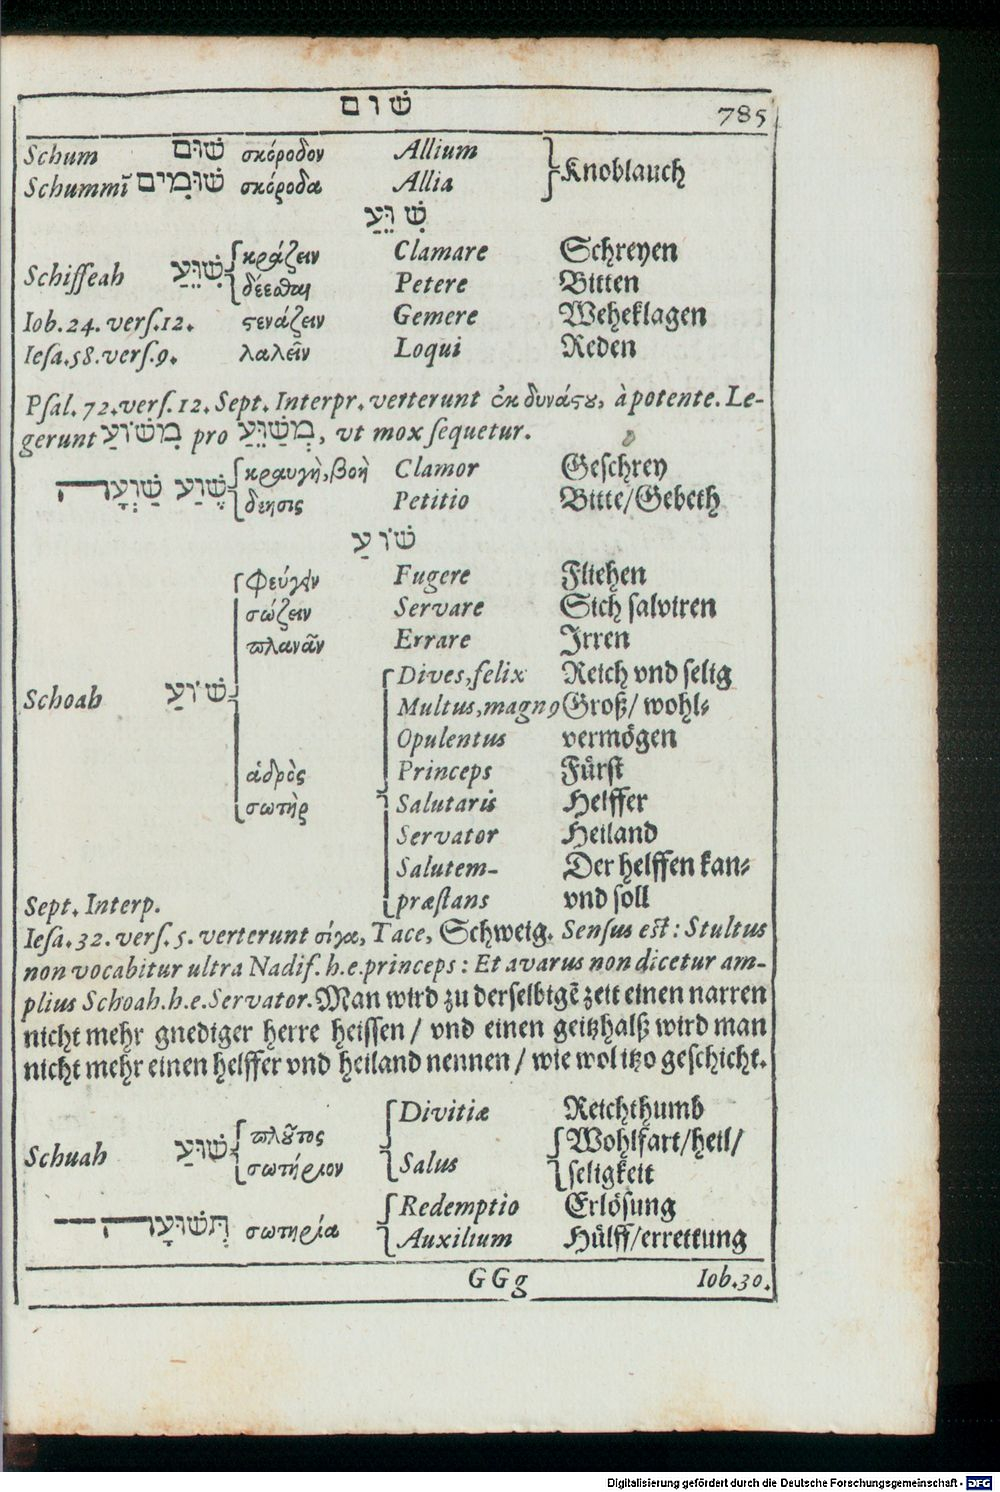 שׁום
785
Schum שׁוּם σκόροδον Allium
Schummĩ שׁוּמִים σκόροδα Allia Knoblauch
שִׁוֵּעַ
κράζειν Clamare Schreyen
Schiſſeah שִׁוֵּעַ δέεσθαι Petere Bitten
Iob.24. verſ.12. ϛενάζειν Gemere Weheklagen
Ieſa.58.verſ.9. λαλεῖν Loqui Reden
Pſal. 72.verſ.12. Sept. Interpr. verterunt ἐκ δυνάϛου, à potente. Le-
gerunt מִשּׁוֹעַ pro מְשַׁוֵּעַ, vt mox ſequetur.
κραυγὴ, βοὴ Clamor Geſchrey
שֶׁוַע שַׁוְעָה δέησις Petitio Bitte/Gebeth
שׁוֹעַ
Φεύγειν Fugere Fliehen
σώζειν Servare Sich ſalviren
πλανᾶν Errare Irren
Dives, felix Reich vnd ſelig
Schoah שׁוֹעַ Multus, magn9 Groß/ wohl⸗
Opulentus vermögen
ἁδρὸς Princeps Fürſt
σωτὴρ Salutaris Helffer
Servator Heiland
Salutem- Der helffen kan⸗
Sept. Interp. præſtans vnd ſoll
Ieſa.32. verſ.5. verterunt σίγα, Tace, Schweig. Senſus eſt: Stultus
non vocabitur ultra Nadif. h.e. princeps: Et avarus non dicetur am-
plius Schoah. h.e. Servator. Man wird zu derſelbigẽ zeit einen narren
nicht mehr gnediger herre heiſſen / vnd einen geitzhalß wird man
nicht mehr einen helffer vnd heiland nennen / wie wol itzo geſchicht.
Divitiæ Reichthumb
πλοῦτος Wohlfart/heil/
Schuah שׁוּעַ σωτήριον Salus ſeligkeit
Redemptio Erlöſung
תְּשׁוּעָה -- σωτηρία Auxilium Hülff/errettung
GGg Iob.30.
Digitalisierung gefördert durch die Deutsche Forschungsgemeinschaft - DFG